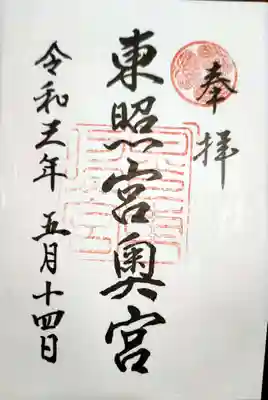 奉拝
東照宮奥宮
令和三年 五月十四日